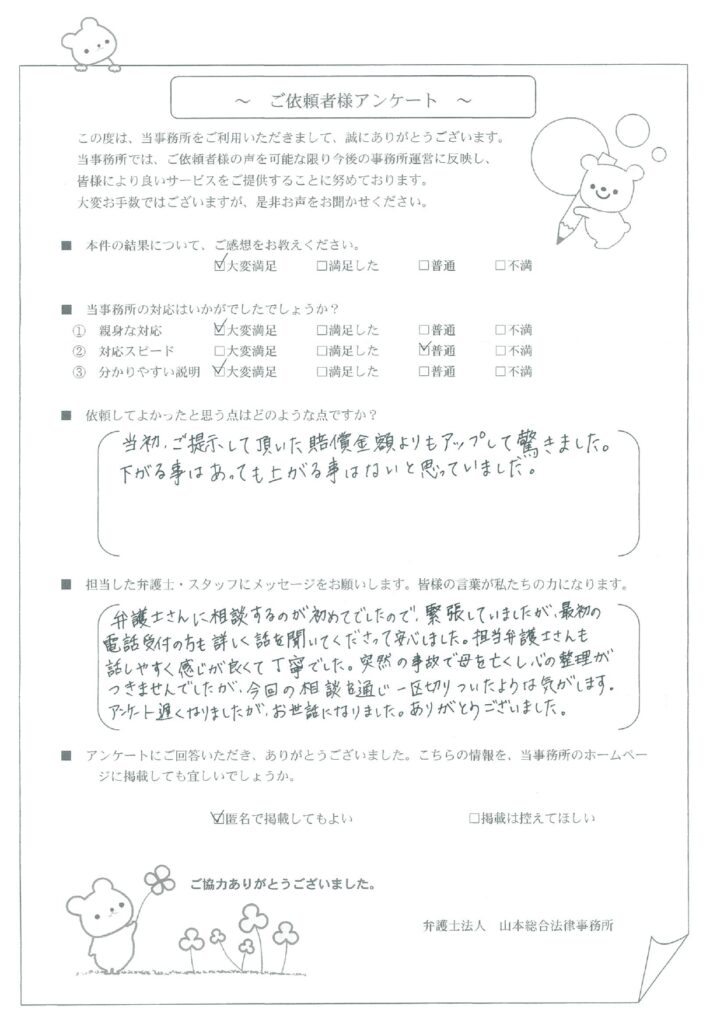 ～ ご依頼者様アンケート ～
この度は、当事務所をご利用いただきまして、誠にありがとうございます。
当事務所では、ご依頼者様の声を可能な限り今後の事務所運営に反映し、
皆様により良いサービスをご提供することに努めております。
大変お手数ではございますが、是非お声をお聞かせください。
■ 本件の結果について、ご感想をお教えください。
☑大変満足 □満足した □普通 □不満
■ 当事務所の対応はいかがでしたでしょうか？
① 親身な対応 ☑大変満足 □満足した □普通 □不満
② 対応スピード □大変満足 □満足した ☑普通 □不満
③ 分かりやすい説明 ☑大変満足 □満足した □普通 □不満
■ 依頼してよかったと思う点はどのような点ですか？
当初、ご提示して頂いた賠償金額よりもアップして驚きました。
下がる事はあっても上がる事はないと思っていました。
■ 担当した弁護士・スタッフにメッセージをお願いします。皆様の言葉が私たちの力になります。
弁護士さんに相談するのが初めてでしたので、緊張していましたが、最初の
電話受付の方も詳しく話を聞いてくださって安心しました。担当弁護士さんも
話しやすく感じが良くて丁寧でした。突然の事故で母を亡くし心の整理が
つきませんでしたが、今回の相談を通じ一区切りついたような気がします。
アンケート遅くなりましたが、お世話になりました。ありがとうございました。
■ アンケートにご回答いただき、ありがとうございました。こちらの情報を、当事務所のホームペー
ジに掲載しても宜しいでしょうか。
☑匿名で掲載してもよい □掲載は控えてほしい
ご協力ありがとうございました。
弁護士法人 山本総合法律事務所